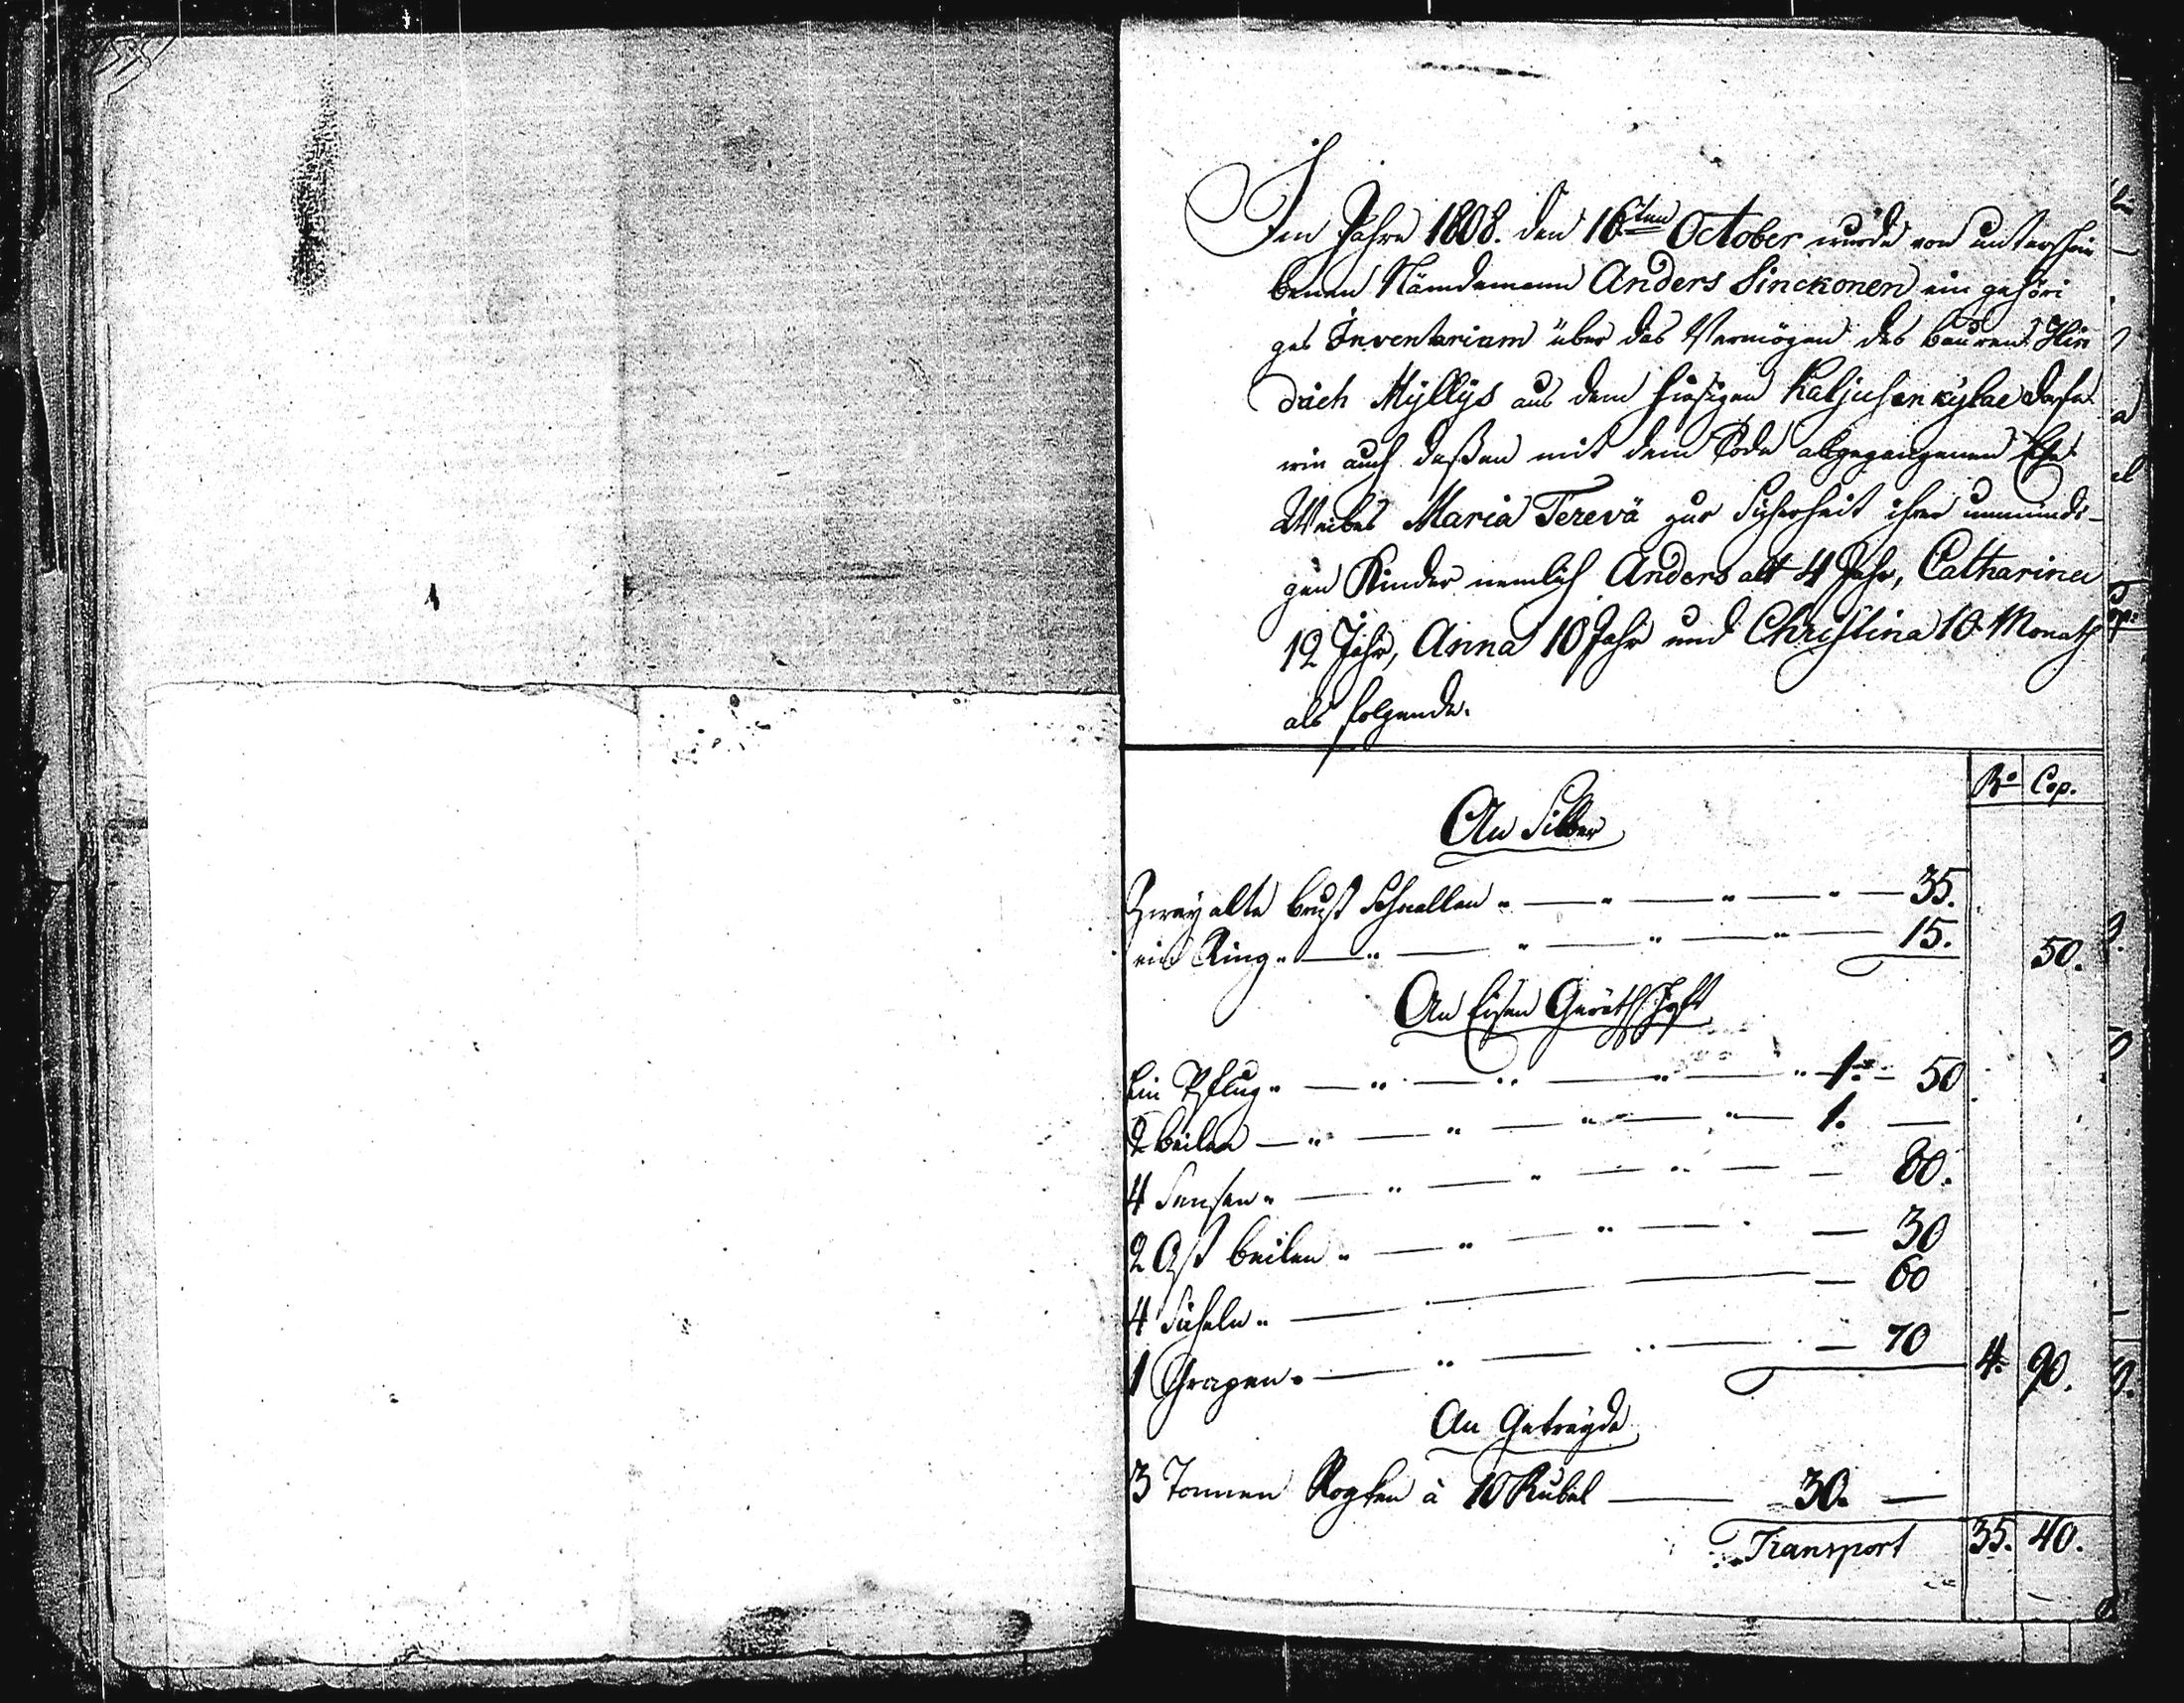 Im Jahre 1808. den 16ten October wurde von unterschrie
benen Nämdemann Anders Sinckonen ein gehöri
ges Inventarium über das Vermögen des bauren Hin
drich Myllys aus dem hiesigen Kaljusenkylae Dorfe
wie auch deßen mit dem Tode abgegangenen Ehe
Weibes Maria Terevä zur Sicherheit ihrer unmündi-
gen Kinder nemlich Anders alt 4 Jahr, Catharina
12 Jahr, Anna 10 Jahr und Christina 10 Monath
als folgende.
Ro Cop.
An Silber
Zwey alte brust Schnallen 35.
ein Ring 15. 50.
An Eisen Geräthschaft
Ein Pflug 1. 50
2 beilen 1. —
4 Sensen 80.
2 Ast beilen 30
4 Sicheln 60
1 Grapen 70 4. 90.
An Getreyde
3 Tonnen Rogken à 10 Rubel 30. —
Transport 35. 40.